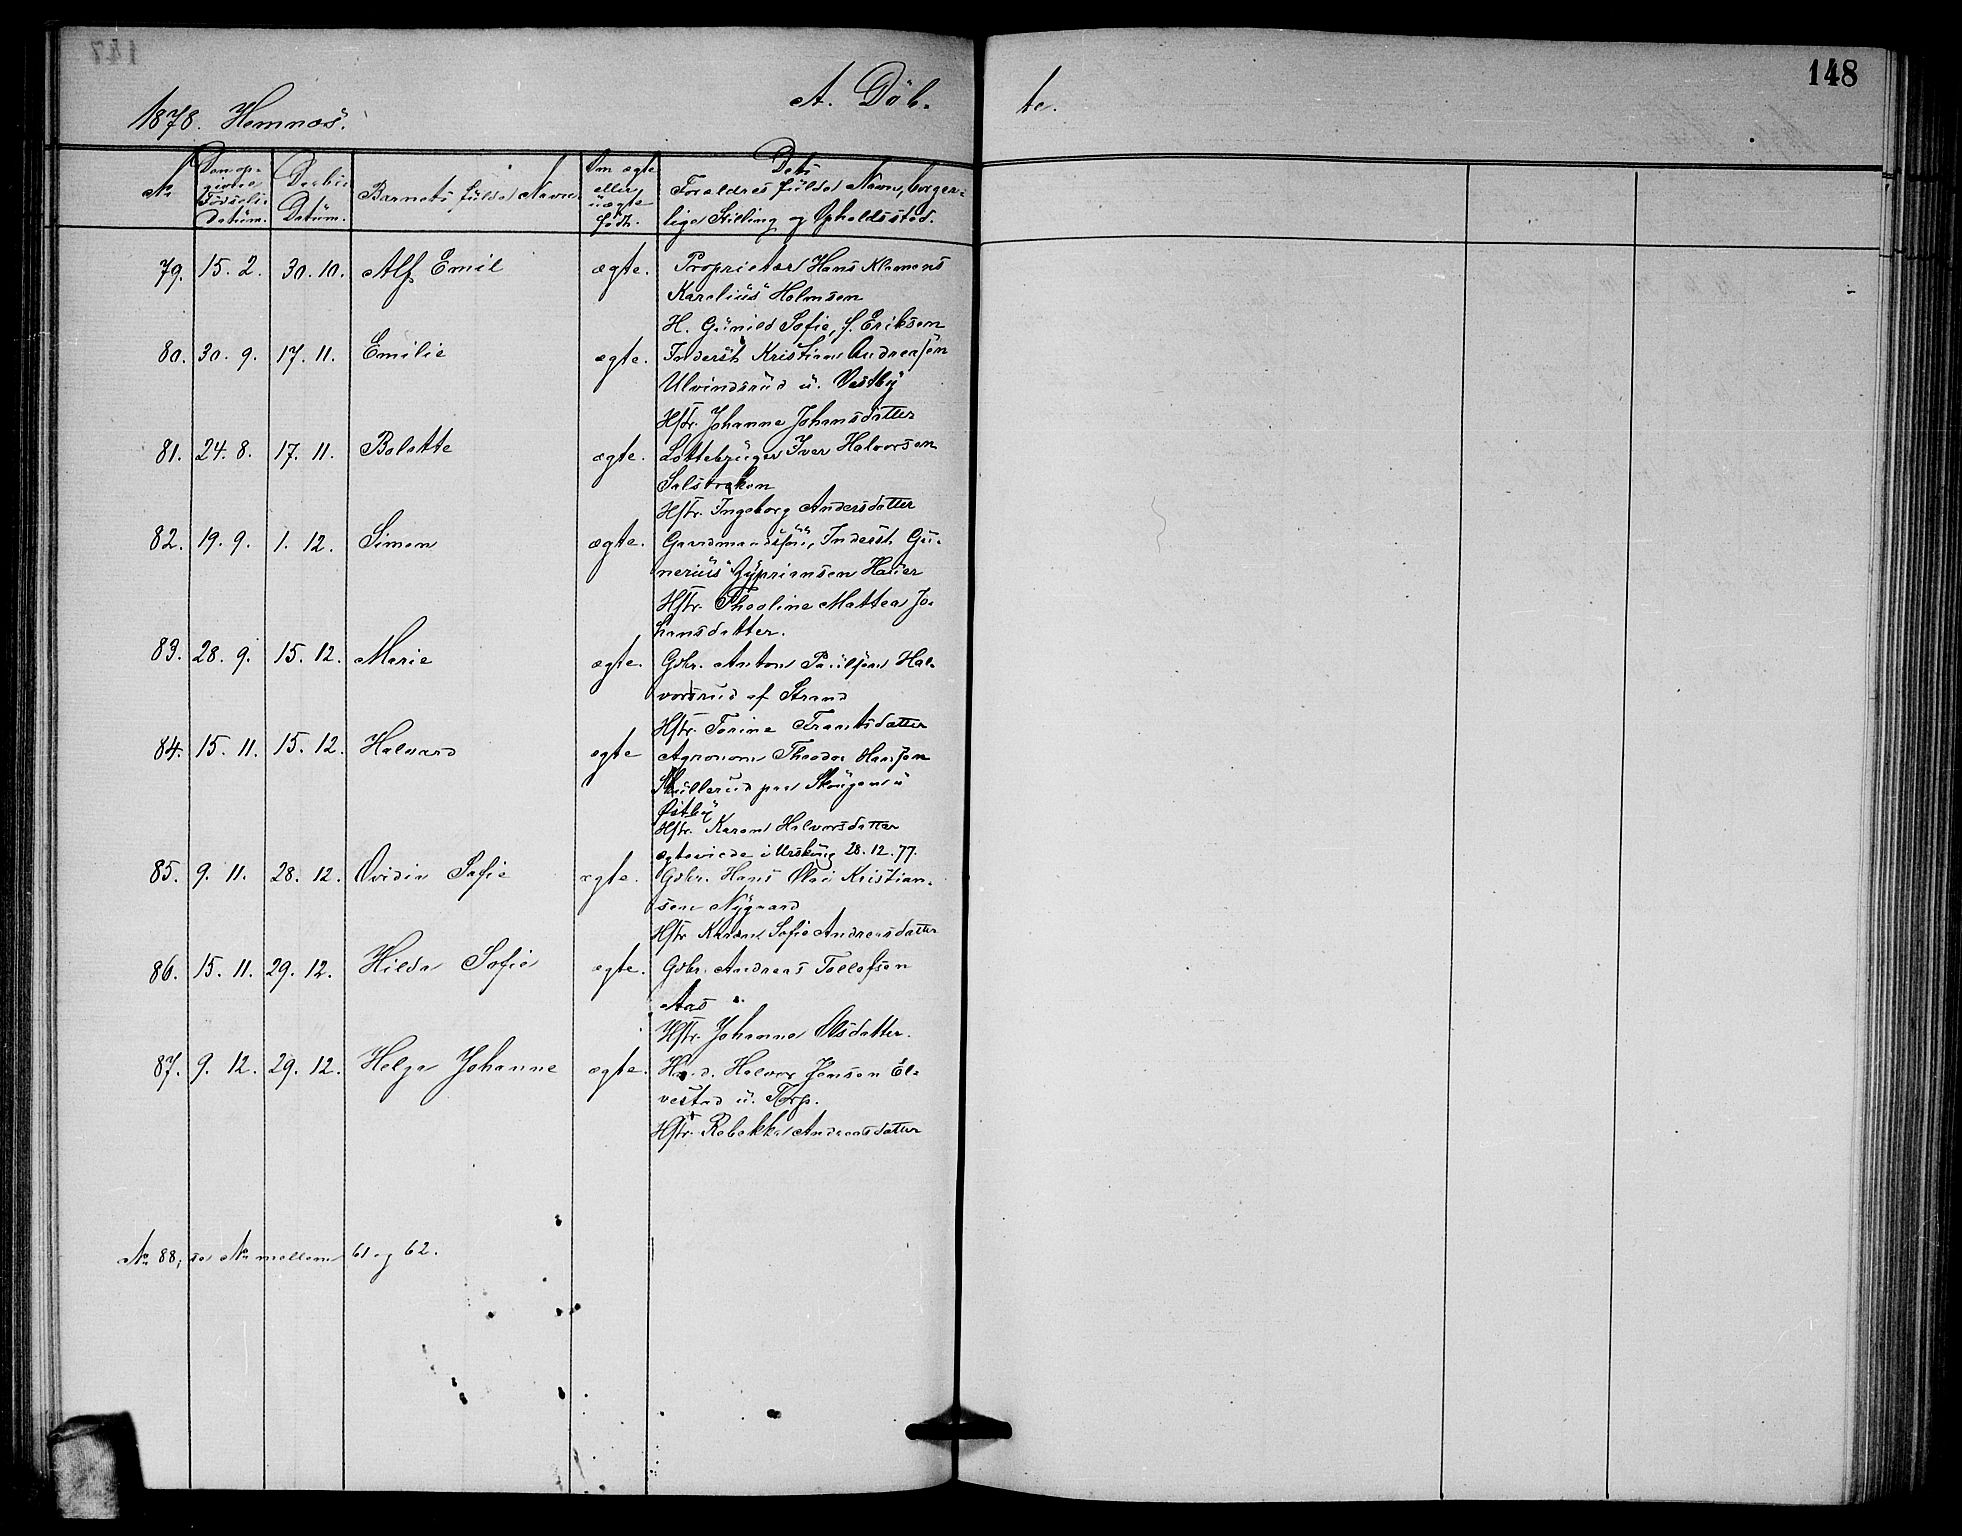 148
A. Döb- te.
1878. Hemnæs.
No
Den opgivne Fødsels Datum.
Daabs Datum.
Barnets fulde Navn
Om ægte eller uægte født.
Dets Forældres fulde Navn, borgerlige Stilling og Opholdssted.
79. 15. 2. 30. 10. Alf Emil ægte. Proprietær Hans Klemens
Karelius Holmsen
H. Gunild Sofie, f. Eriksen
80. 30. 9. 17. 11. Emilie ægte. Inderst Kristian Andreasen
Ulvindsrud u. Vestby
Hstr. Johanne Johansdatter
81. 24. 8. 17. 11. Bolette ægte. Lottebruger Iver Halvorsen
Salstrøken
Hstr. Ingeborg Andersdatter
82. 19. 9. 1. 12. Simen ægte. Gaardmandssøn, Inderst Gu-
nerius Zypriansen Hauer
Hstr. Theoline Mattea Jo-
hansdatter.
83. 28. 9. 15. 12. Marie ægte. Gdbr. Anton Paulsen Hal-
vorsrud af Strand
Hstr. Torine Frantsdatter
84. 15. 11. 15. 12. Halvard ægte Agronom Theodor Hansen
Skullerud paa Skougen u
Østby
Hstr. Karen Halvorsdatter
ægteviede i Urskoug 28. 12. 77.
85. 9. 11. 28. 12. Ovidia Sofie ægte. Gdbr. Hans Olai Kristian-
sen Nygaard
Hstr. Karen Sofie Andreasdatter
86. 15. 11. 29. 12. Hilda Sofie ægte. Gdbr. Andreas Tollefsen
Aas
Hstr. Johanne Olsdatter.
87. 9. 12. 29. 12. Helga Johanne ægte. Halvor Jensen El-
vestad u. Torp.
Hstr. Rebekka Andreasdatter
No 88, se No mellem 61 og 62.